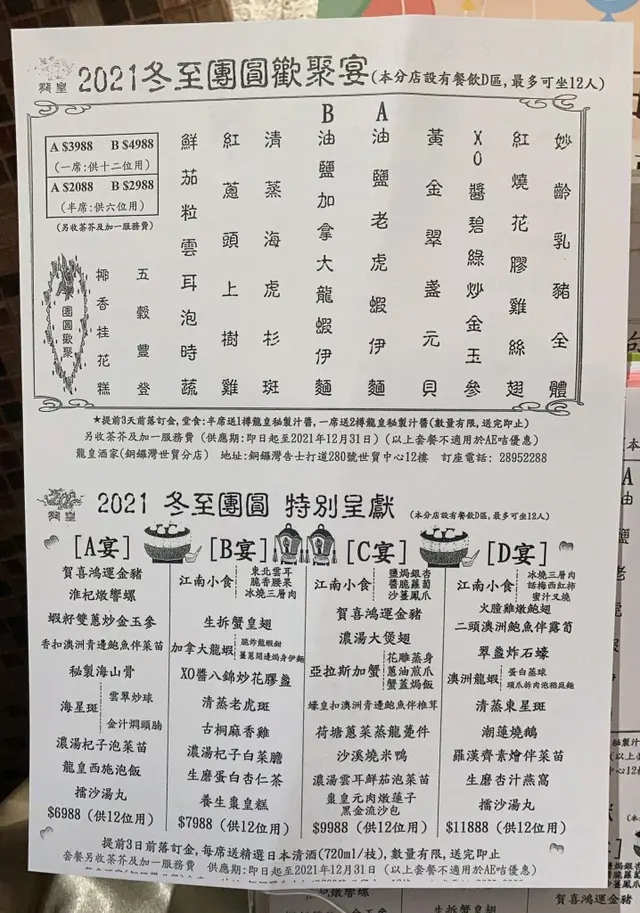 龍皇
2021冬至團圓歡聚宴(本分店設有餐飲D區,最多可坐12人)
A $3988 B $4988
(一席:供十二位用)
A $2088 B $2988
(半席:供六位用)
(另收茶芥及加一服務費)
團圓歡聚
妙齡乳豬全體
紅燒花膠雞絲翅
XO醬碧綠炒金玉參
黃金翠盞元貝
A
油鹽老虎蝦伊麵
B
油鹽加拿大龍蝦伊麵
清蒸海虎杉斑
紅蔥頭上樹雞
鮮茄粒雲耳泡時蔬
五穀豐登
椰香桂花糕
★提前3天前落訂金,堂食:半席送1樽龍皇秘製汁醬,一席送2樽龍皇秘製汁醬(數量有限,送完即止)
另收茶芥及加一服務費 (供應期:即日起至2021年12月31日) (以上套餐不適用於AE咭優惠)
龍皇酒家(銅鑼灣世貿分店) 地址:銅鑼灣告士打道280號世貿中心12樓 訂座電話: 28952288
龍皇
2021 冬至團圓 特別呈獻 (本分店設有餐飲D區,最多可坐12人)
[A宴]
賀喜鴻運金豬
淮杞燉響螺
蝦籽雙蔥炒金玉參
香扣澳洲青邊鮑魚伴菜苗
秘製海山骨
海星斑
雲翠炒球
金汁燜頭腩
濃湯杞子泡菜苗
龍皇西施泡飯
擂沙湯丸
$6988 (供12位用)
[B宴]
江南小食
東北雲耳
脆香腰果
冰燒三層肉
生拆蟹皇翅
加拿大龍蝦
脆炸龍蝦鉗
薑蔥開邊焗身伊麵
XO醬八錦炒花膠盞
清蒸老虎斑
古桐麻香雞
濃湯杞子白菜膽
生磨蛋白杏仁茶
養生棗皇糕
$7988 (供12位用)
[C宴]
江南小食
鹽焗銀杏
醬脆蘿蔔
沙薑鳳爪
賀喜鴻運金豬
濃湯大煲翅
亞拉斯加蟹
花雕蒸身
蔥油煎爪
蟹蓋焗飯
蠔皇扣澳洲青邊鮑魚伴椎茸
荷塘蔥菜蒸龍躉件
沙溪燒米鴨
濃湯雲耳鮮茄泡菜苗
棗皇元肉燉蓮子
黑金流沙包
$9988 (供12位用)
[D宴]
江南小食
冰燒三層肉
話梅西紅柿
蜜汁叉燒
火朣雞燉鮑翅
二頭澳洲鮑魚伴露荀
翠盞炸石蠔
澳洲龍蝦
蛋白蒸球
頭爪拆肉泡稻庭麵
清蒸東星斑
潮蓮燒鵝
羅漢齊素燴伴菜苗
生磨杏汁燕窩
擂沙湯丸
$11888 (供12位用)
提前3日前落訂金,每席送精選日本清酒(720ml/枝),數量有限,送完即止
套餐另收茶芥及加一服務費 供應期:即日起至2021年12月31日 (以上套餐不適用於AE咭優惠)